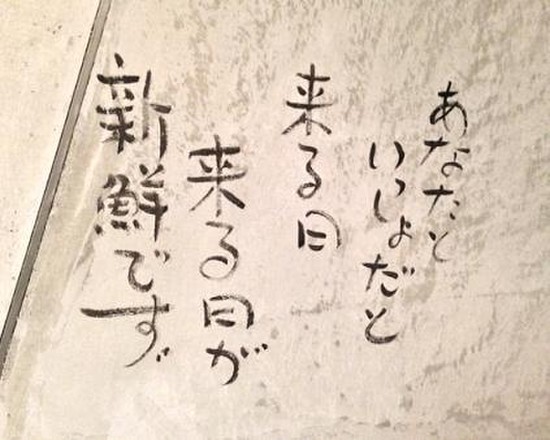 あなたと
いっしょだと
来る日
来る日が
新鮮です。